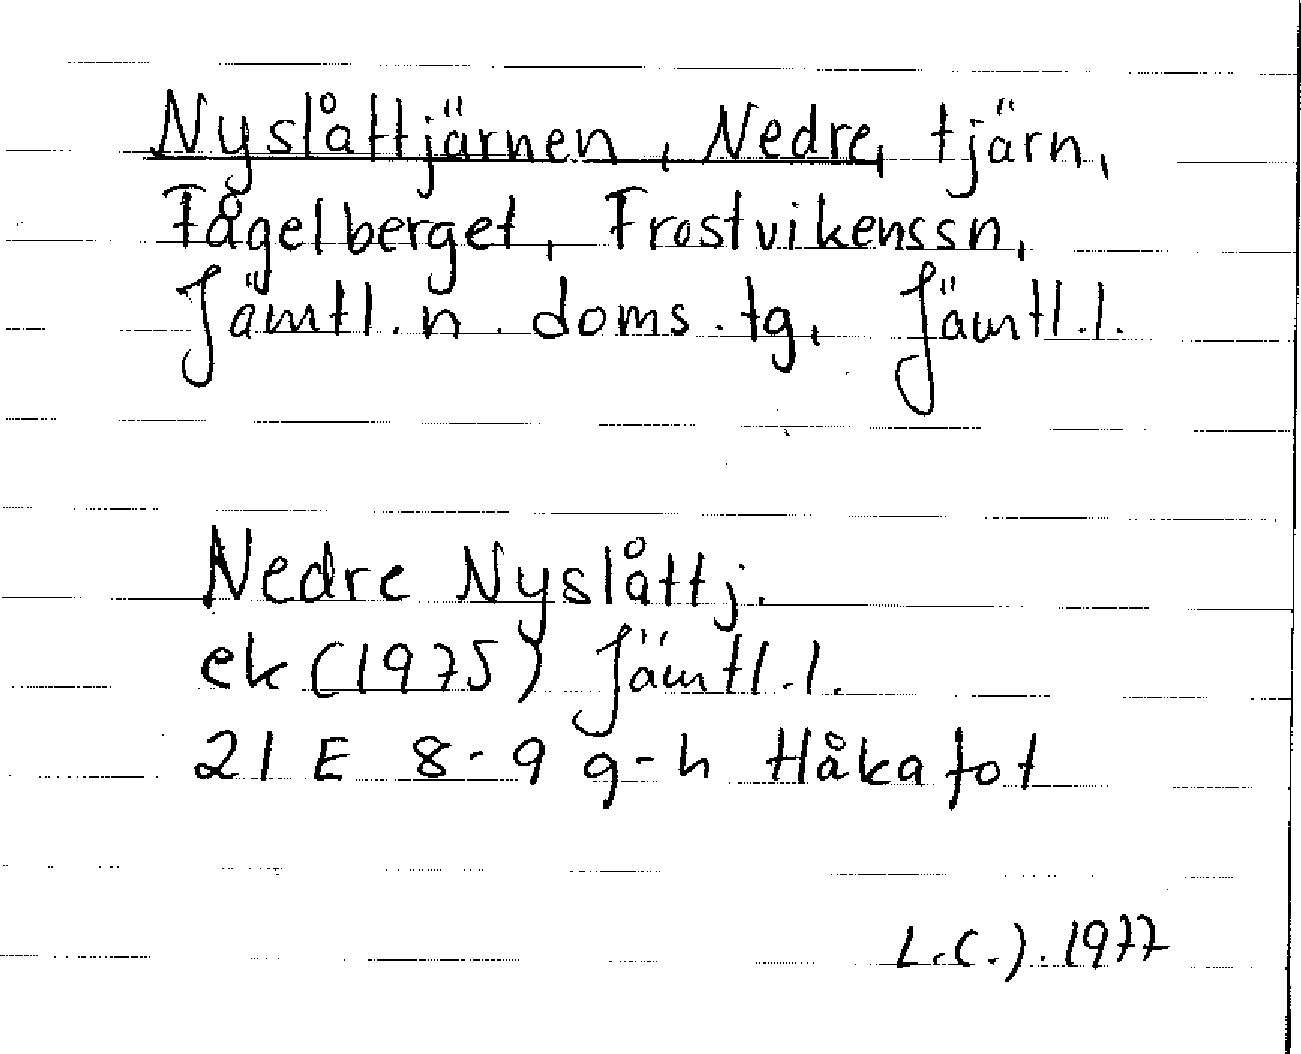 Nyslåttjärnen, Nedre, tjärn,
Fågelberget, Frostvikenssn,
Jämtl. n. doms. tg, Jämtl. l.
Nedre Nyslåttj.
ek (1975) Jämtl. l.
21 E 8-9 g-h Håkafot
L.C.J. 1977